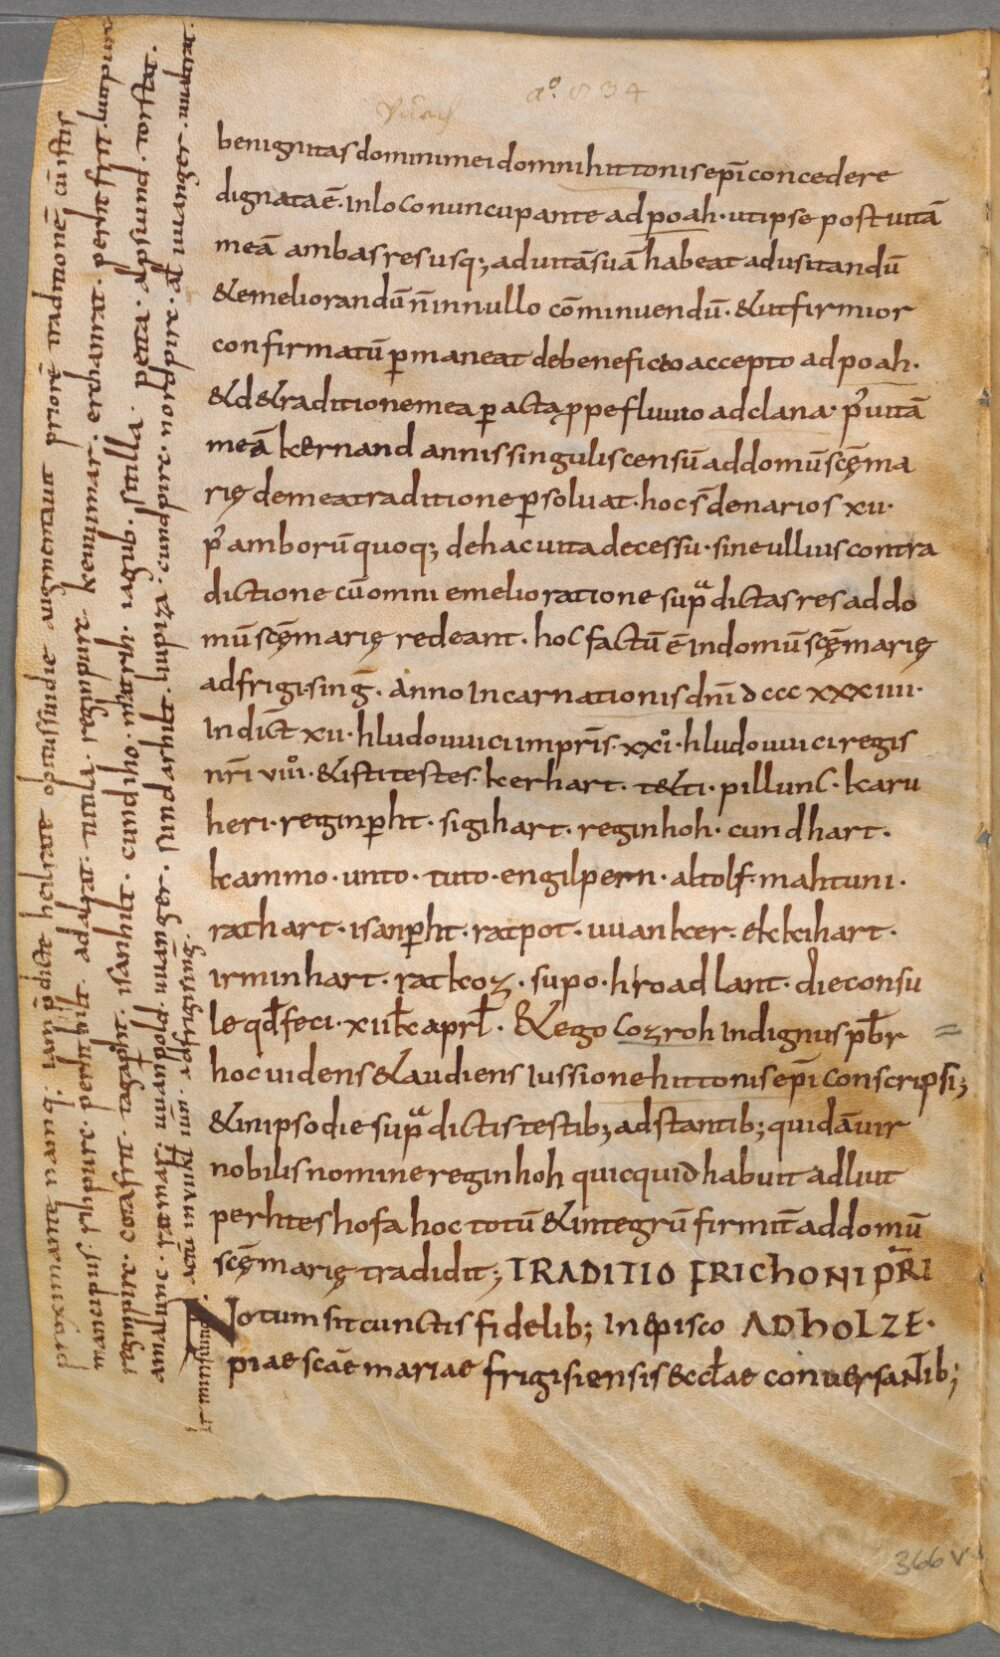 aº. 834
benignitas domini mei domni hittonis epī concedere
dignata ē. In loco nuncupante ad poah. ut ipse post uitā
meā ambas res usq; ad uitā suā habeat ad usitandū
& emeliorandū n̄ in nullo cōminuendū. & ut firmior
confirmatū p̱maneat de beneficio accepto ad poah.
& de traditione mea p̱acta ppe fluuio adclana. p̓ uitā
meā kernand annis singulis censū ad domū scę̄ ma
rię de mea traditione p̱soluat. hoc s̄ denarios xii.
p̓ amborū quoq; de hac uita decessu. sine ullius contra
dictione cū omni emelioratione supͣdictas res ad do
mū scę̄ marię redeant. hoc factū ē In domū scę̄ marię
ad frigising̅. Anno Incarnationis dn̄i dccc xxxiiii.
Indict̄ xii. hludouuici impr̄is. xxi͛. hludouuici regis
nr̄i viiii͛. & isti testes. kerhart. t&ti. pillunc. karu
heri. reginp̱ht. sigihart. reginhoh. cundhart.
kammo. unto. tuto. engilpern. altolf. mahtuni.
rathart. isanp̱ht. ratpot. uuanker. ekkihart.
irminhart. ratkoz. supo. hroadlant. die consu
le qđ feci. xii kƚ aprƚ. & ego cozroh Indignus pƀr
hoc uidens & audiens Iussione hittonis epī conscripsi;
& in ipso die supͣdictis testib; adstantib; quidā uir
nobilis nomine reginhoh quicquid habuit ad liut
perhteshofa hoc totū & integrū firmit̄ ad domū
scę̄ marię tradidit; TRADITIO FRICHONI PR̄I
Notum sit cunctis fidelib; In episco AD HOLZE.
piae scāe mariae frigisiensis eccƚae conuersantib;
proximante namq. iam p̄dicte heilrate obitus sui die augmentauit priorē traditionē cū istis
mancipiis rihpure. perhthilt. adalrat. utila. reginpure. kenimar. erchanrat. perhtfrit. liutpure
reginpire. cotafrit. tagap̱ht. isanhilt. cundiho. matrih. iagub. stilla. petta. alpsuind. torstat.
amalunc. ratmar. uuanpold. uuanger. sundarhilt. liupiza. cundpire. nordpire. alt̄ uuanger. uualtrat.
irminsuind. actū in uuikt iun. ad frigising.
366 v